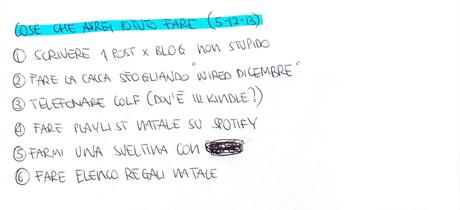 COSE CHE AVREI POTUTO FARE (5-12-13)
① SCRIVERE 1 POST X BLOG NON STUPIDO
② FARE LA CACCA SFOGLIANDO "WIRED DICEMBRE"
③ TELEFONARE COLF (DOV'È IL KINDLE?)
④ FARE PLAYLIST NATALE SU SPOTIFY
⑤ FARMI UNA SVELTINA CON
⑥ FARE ELENCO REGALI NATALE